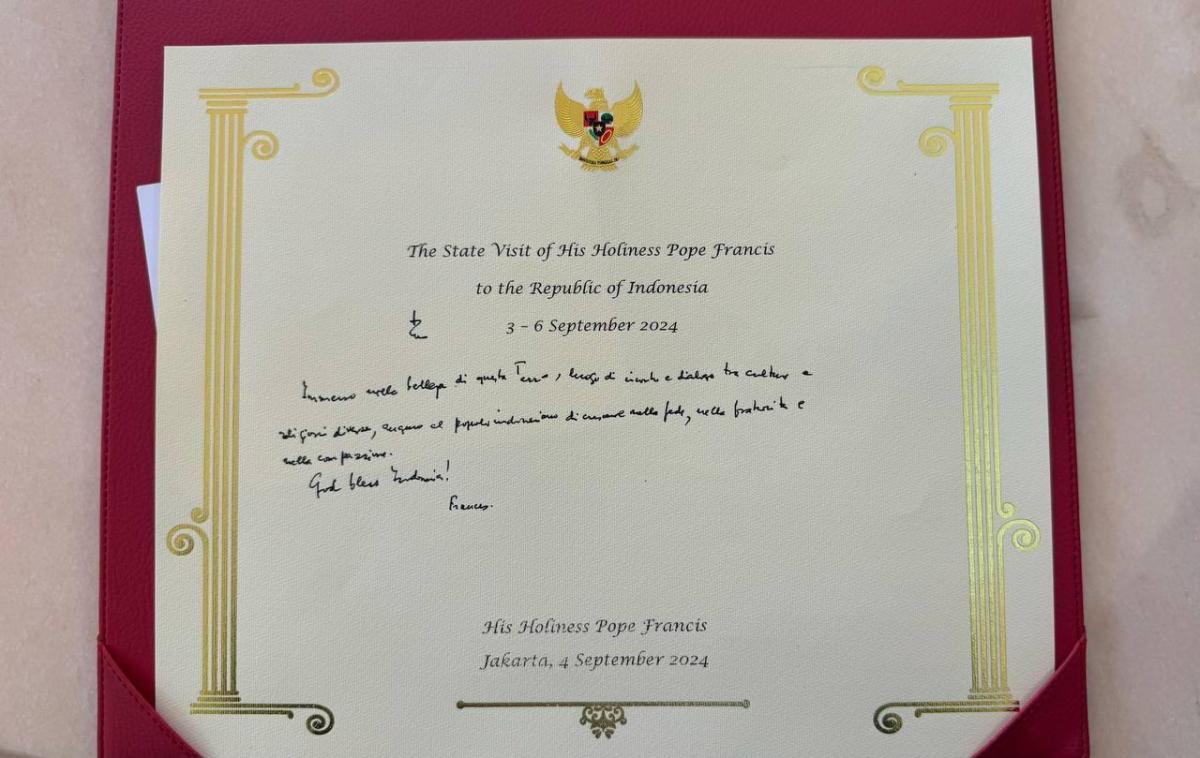 The State Visit of His Holiness Pope Francis
to the Republic of Indonesia
3 – 6 September 2024
Immerso nella bellezza di questa Terra, luogo di incontro e dialogo tra culture e
religioni diverse, auguro al popolo indonesiano di crescere nella fede, nella fraternità e
nella compassione.
God bless Indonesia!
Francesco
His Holiness Pope Francis
Jakarta, 4 September 2024